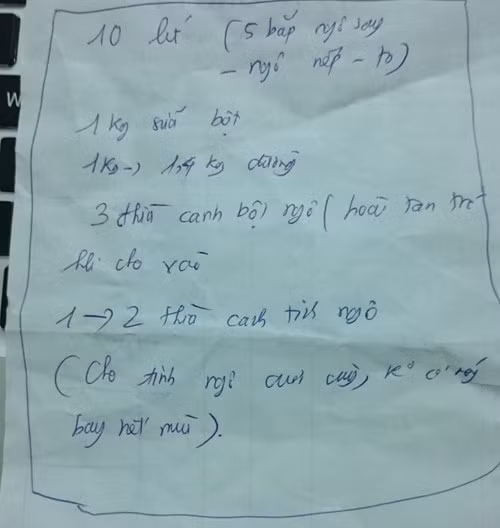 10 lít (5 bắp ngô say
– ngô nếp – to)
1 kg sữa bột
1kg → 1,4 kg đường
3 thìa canh bột ngô (hoà tan trc
khi cho vào
1 → 2 thìa canh tinh ngô
(Cho tinh ngô cuối cùng, ko
bay hết mùi).
W